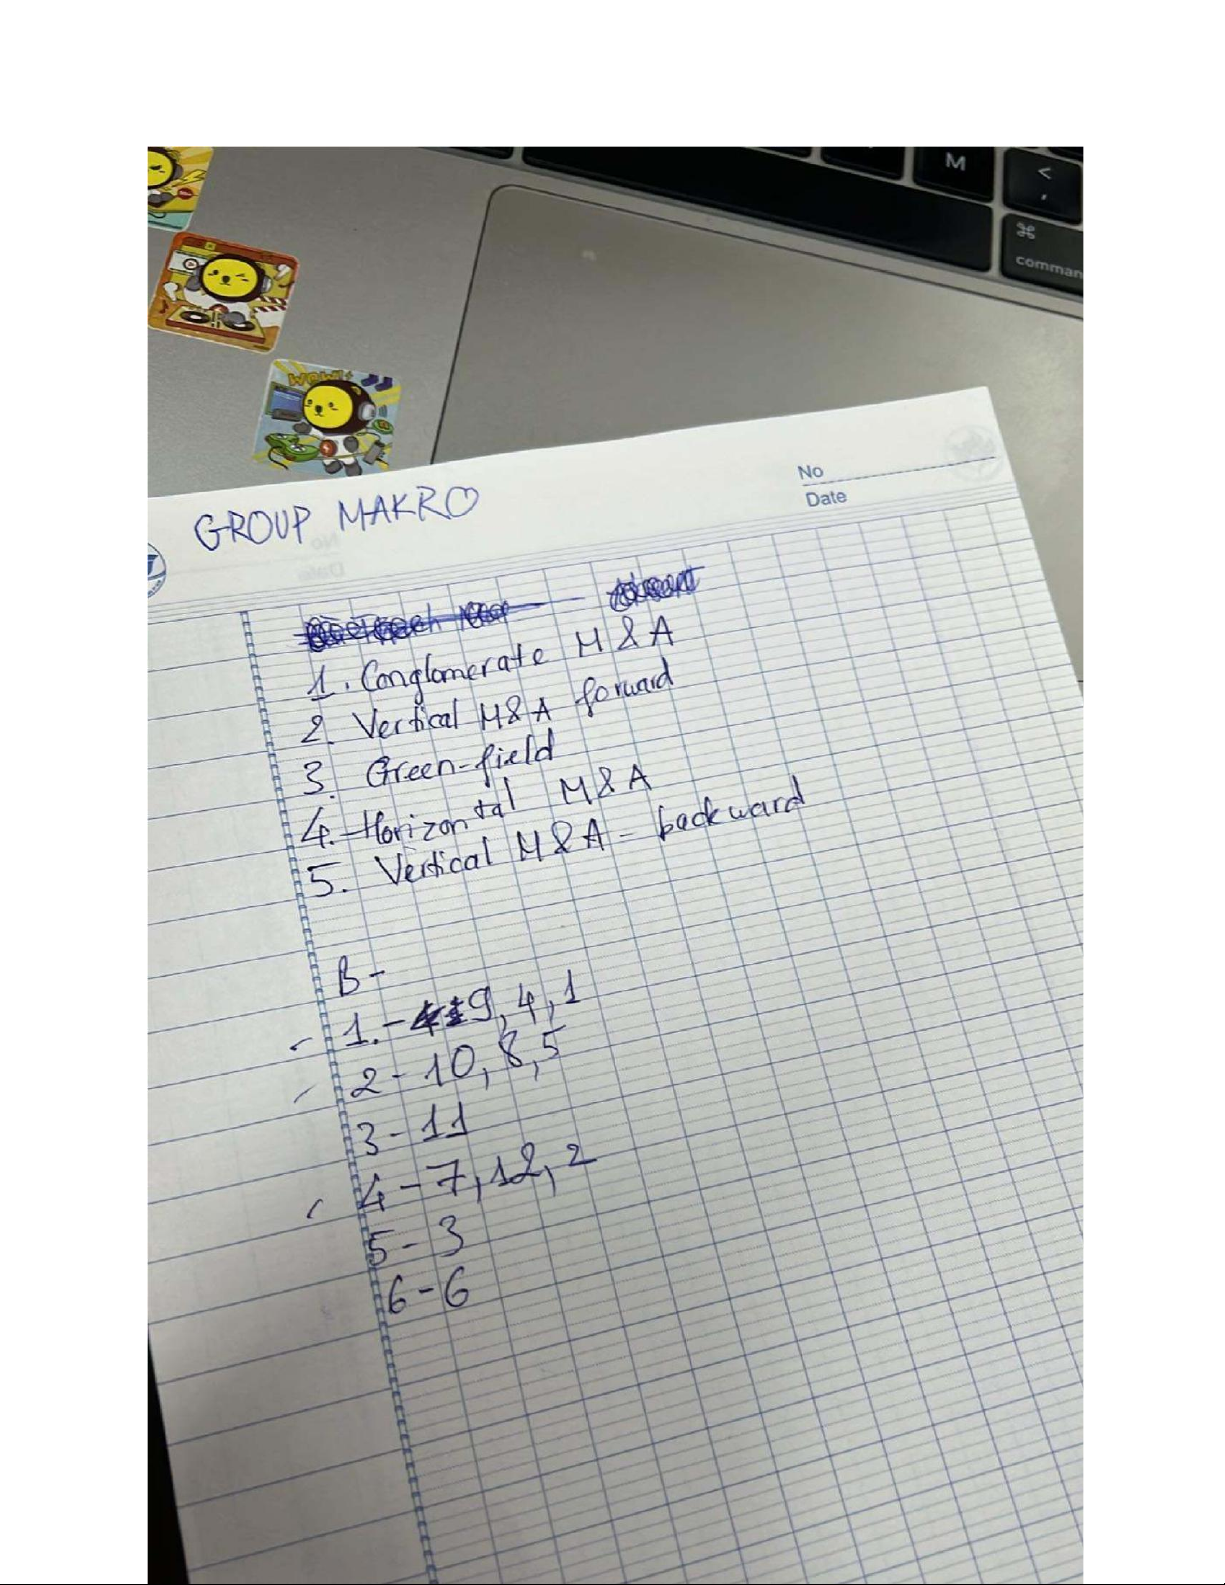 M
<
,
⌘
command
WOW!
No
Date
GROUP MAKRO
1. Conglomerate M&A
2. Vertical M&A forward
3. Green-field
4. Horizontal M&A
5. Vertical M&A - backward
B-
1. - 9, 4, 1
2 - 10, 8, 5
3 - 11
4 - 7, 12, 2
5 - 3
6 - 6